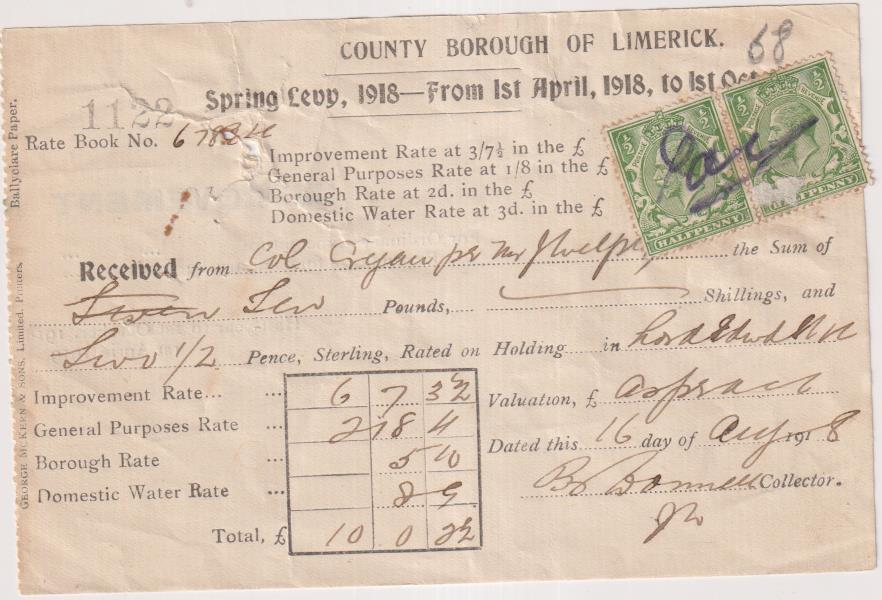 COUNTY BOROUGH OF LIMERICK.
68
Spring Levy, 1918—From 1st April, 1918, to 1st Oct
1122
Rate Book No. 6
Improvement Rate at 3/7½ in the £
General Purposes Rate at 1/8 in the £
Borough Rate at 2d. in the £
Domestic Water Rate at 3d. in the £
POSTAGE REVENUE
½ ½
HALFPENNY
POSTAGE REVENUE
½ ½
HALFPENNY
Received from Col Cryan per Mr the Sum of
Seven Ten Pounds, Shillings, and
Two 1/2 Pence, Sterling, Rated on Holding in Lord Edwd St
Improvement Rate... ... 6 7 3½
General Purposes Rate ... 2 18 4
Borough Rate ... 5 10
Domestic Water Rate ... 8 9
Total, £ 10 0 2½
Valuation, £ as per act
Dated this 16 day of Aug 1918
Collector.
GEORGE MCKERN & SONS, Limited, Printers,
Ballyclare Paper.